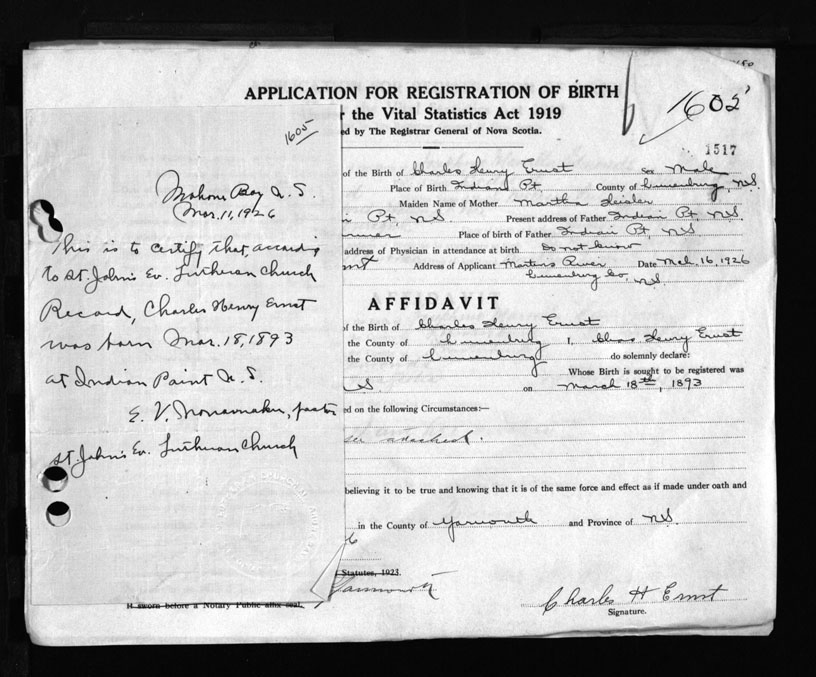 APPLICATION FOR REGISTRATION OF BIRTH
r the Vital Statistics Act 1919
ed by The Registrar General of Nova Scotia.
1605
1517
of the Birth of Charles Henry Ernst Sex Male
Place of Birth Indian Pt. County of Lunenburg, N.S.
Maiden Name of Mother Martha Heisler
Pt, N.S. Present address of Father Indian Pt, N.S.
Place of birth of Father Indian Pt, N.S.
address of Physician in attendance at birth Do not know
Address of Applicant Martins River Date Mch. 16, 1926
Lunenburg Co, N.S.
AFFIDAVIT
of the Birth of Charles Henry Ernst
the County of Lunenburg I, Chas Henry Ernst
the County of Lunenburg do solemnly declare:
Whose Birth is sought to be registered was
on March 18th, 1893
ed on the following Circumstances:—
see attached.
believing it to be true and knowing that it is of the same force and effect as if made under oath and
in the County of Yarmouth and Province of N.S.
Statutes, 1923.
Yarmouth
If sworn before a Notary Public affix seal.
Charles H Ernst
Signature.
1605
Mahone Bay N.S.
Mar. 11, 1926
This is to certify that, according
to St. John's Ev. Lutheran Church
Record, Charles Henry Ernst
was born Mar. 18, 1893
at Indian Point N.S.
E. V. Nonamaker, pastor
St. John's Ev. Lutheran Church